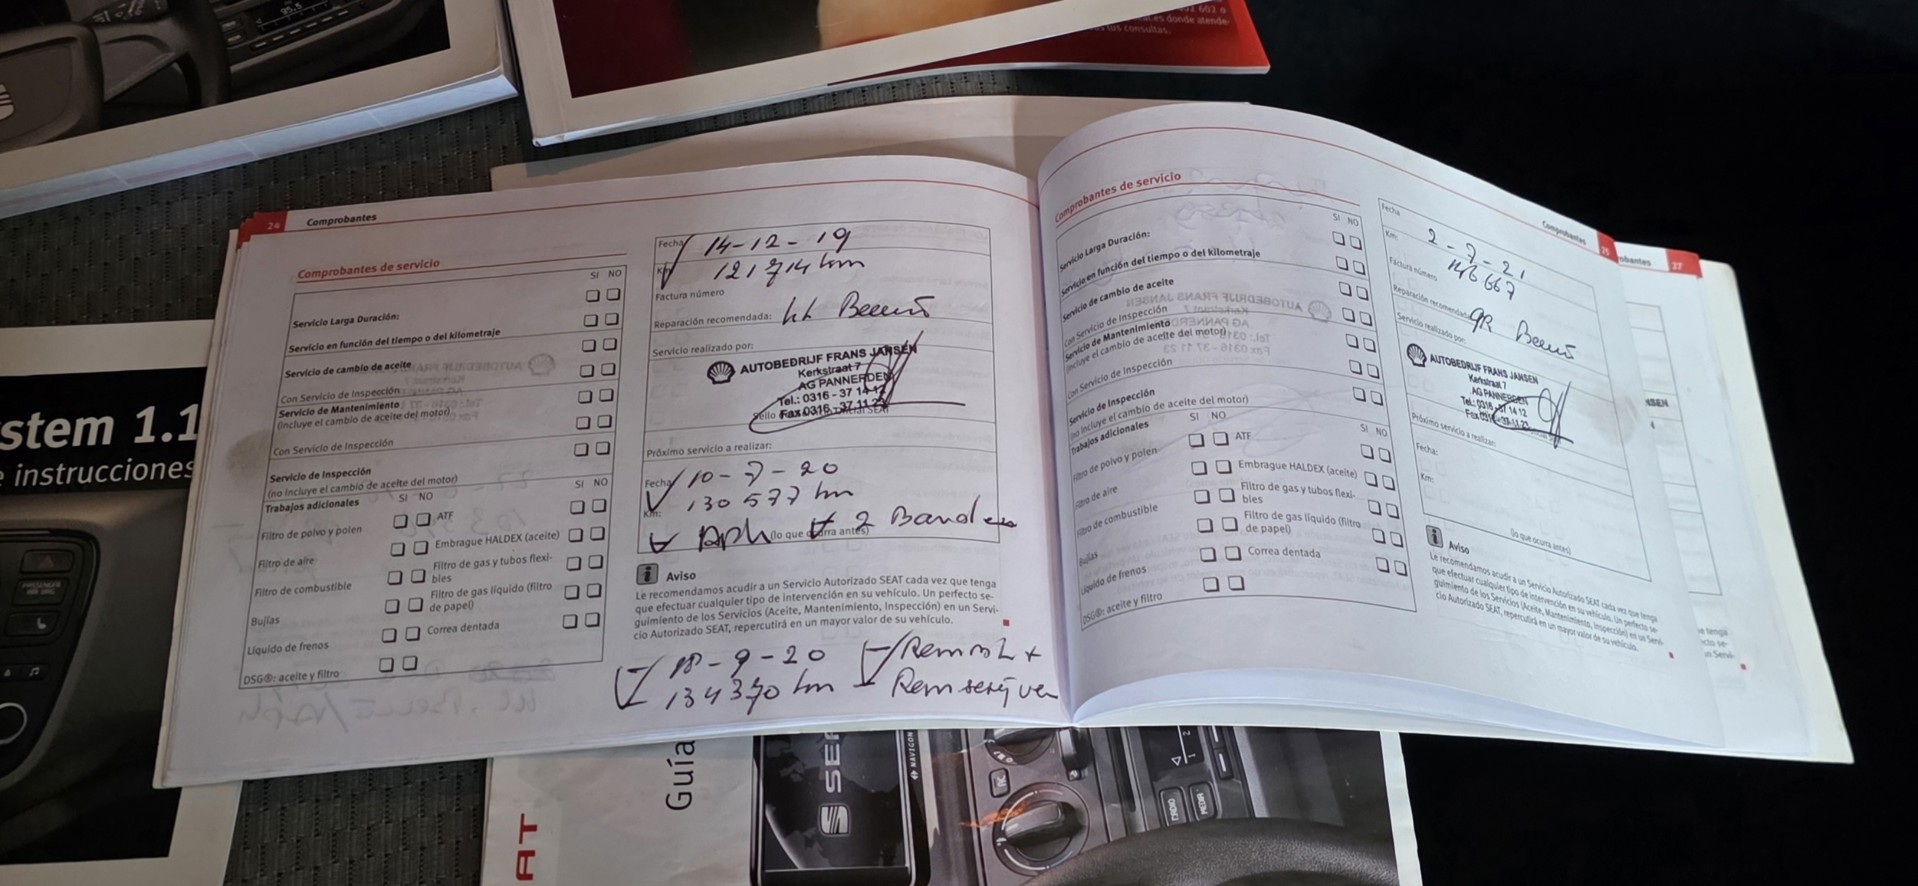 95.5
902 602 o
donde atende-
tus consultas.
stem 1.1
e instrucciones
PASSENGER
AIR BAG
24 Comprobantes
Comprobantes de servicio
SI NO
Servicio Larga Duración:
Servicio en función del tiempo o del kilometraje
Servicio de cambio de aceite
Con Servicio de Inspección
Servicio de Mantenimiento
(incluye el cambio de aceite del motor)
Con Servicio de Inspección
Servicio de Inspección
(no incluye el cambio de aceite del motor)
Trabajos adicionales
SI NO
SI NO
Filtro de polvo y polen
ATF
Filtro de aire
Embrague HALDEX (aceite)
Filtro de combustible
Filtro de gas y tubos flexi-
bles
Bujías
Filtro de gas líquido (filtro
de papel)
Líquido de frenos
Correa dentada
DSG®: aceite y filtro
Fecha 14-12-19
Km 121714 km
Factura número
Reparación recomendada:
Servicio realizado por:
AUTOBEDRIJF FRANS JANSEN
Kerkstraat 7
AG PANNERDEN
Tel.: 0316 - 37 14 12
Fax 0316 - 37 11 23
Próximo servicio a realizar:
Fecha 10-7-20
Km: 130577 km
(lo que ocurra antes)
Apk 2 Banden
i Aviso
Le recomendamos acudir a un Servicio Autorizado SEAT cada vez que tenga
que efectuar cualquier tipo de intervención en su vehículo. Un perfecto se-
guimiento de los Servicios (Aceite, Mantenimiento, Inspección) en un Servi-
cio Autorizado SEAT, repercutirá en un mayor valor de su vehículo.
18-9-20
134370 km
Comprobantes 25
Comprobantes de servicio
SI NO
Servicio Larga Duración:
Servicio en función del tiempo o del kilometraje
Servicio de cambio de aceite
Con Servicio de Inspección
Servicio de Mantenimiento
(incluye el cambio de aceite del motor)
Con Servicio de Inspección
Servicio de Inspección
(no incluye el cambio de aceite del motor)
Trabajos adicionales
SI NO
SI NO
Filtro de polvo y polen
ATF
Filtro de aire
Embrague HALDEX (aceite)
Filtro de combustible
Filtro de gas y tubos flexi-
bles
Bujías
Filtro de gas líquido (filtro
de papel)
Líquido de frenos
Correa dentada
DSG®: aceite y filtro
Fecha 2-7-21
Km: 146667
Factura número
Reparación recomendada:
Servicio realizado por:
AUTOBEDRIJF FRANS JANSEN
Kerkstraat 7
AG PANNERDEN
Tel.: 0316 - 37 14 12
Fax 0316 - 37 11 23
Próximo servicio a realizar:
Fecha:
Km:
(lo que ocurra antes)
i Aviso
Le recomendamos acudir a un Servicio Autorizado SEAT cada vez que tenga
que efectuar cualquier tipo de intervención en su vehículo. Un perfecto se-
guimiento de los Servicios (Aceite, Mantenimiento, Inspección) en un Servi-
cio Autorizado SEAT, repercutirá en un mayor valor de su vehículo.
27
Guía
RADIO
MEDIA